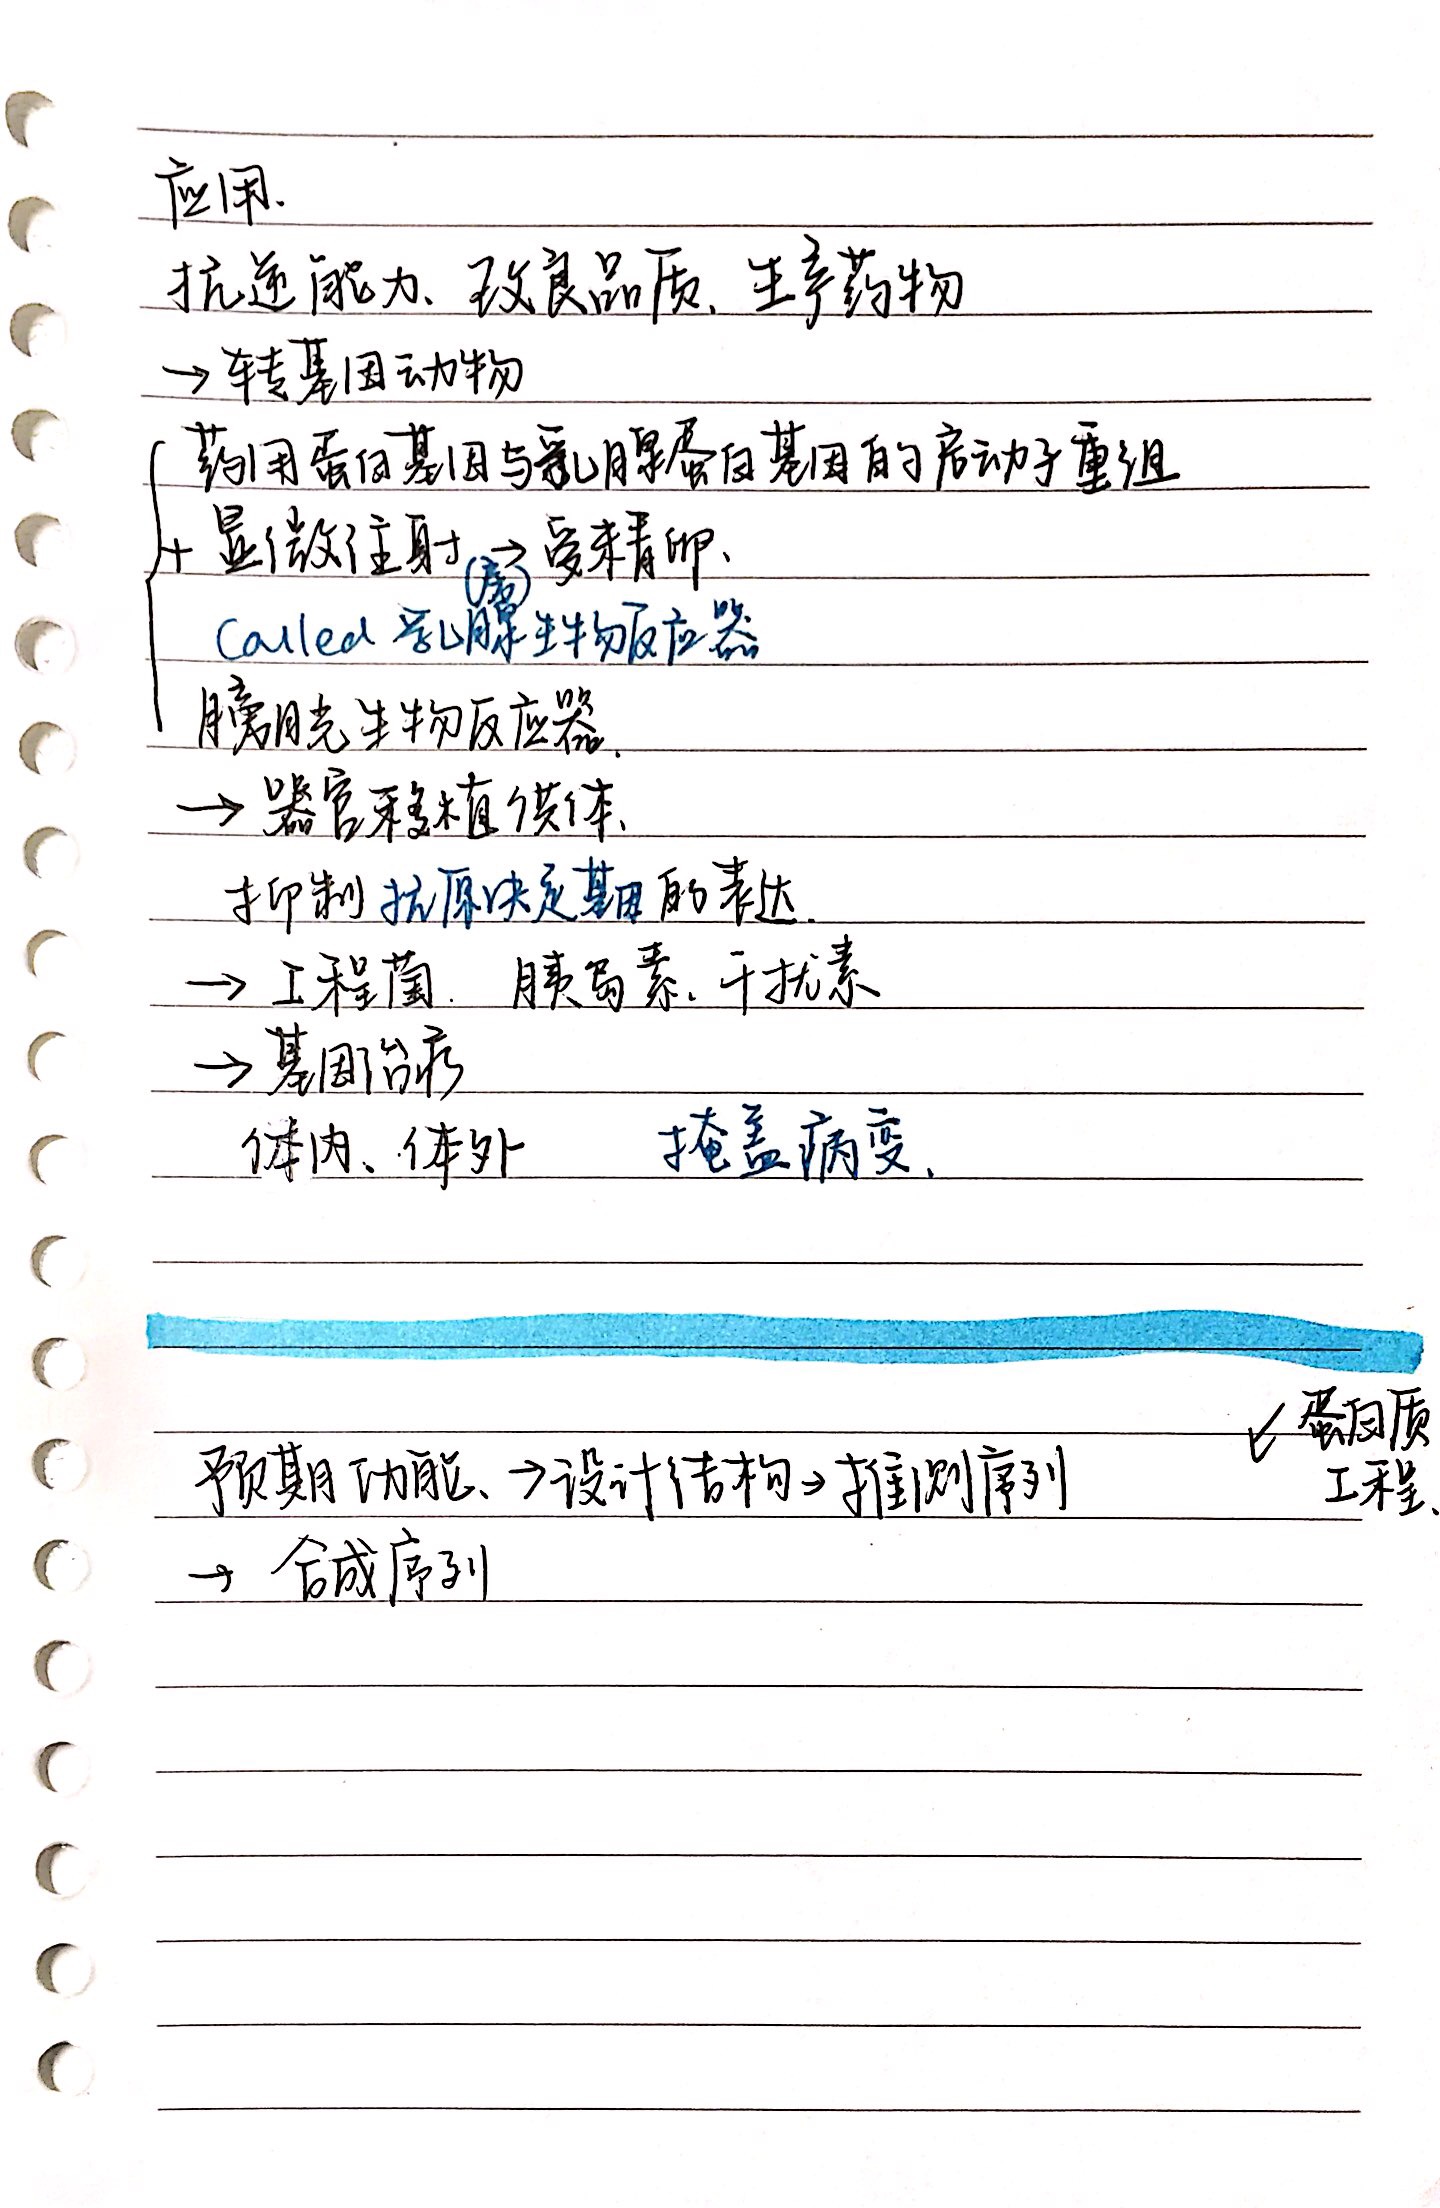 应用.
抗逆能力、改良品质、生产药物
→转基因动物
药用蛋白基因与乳腺蛋白基因的启动子重组
+ 显微注射→受精卵、
(房)
called 乳腺生物反应器
膀胱生物反应器.
→器官移植供体、
抑制抗原决定基因的表达.
→工程菌. 胰岛素、干扰素
→基因治疗
体内、体外 掩盖病变、
↙蛋白质
工程、
预期功能、→设计结构→推测序列
→ 合成序列